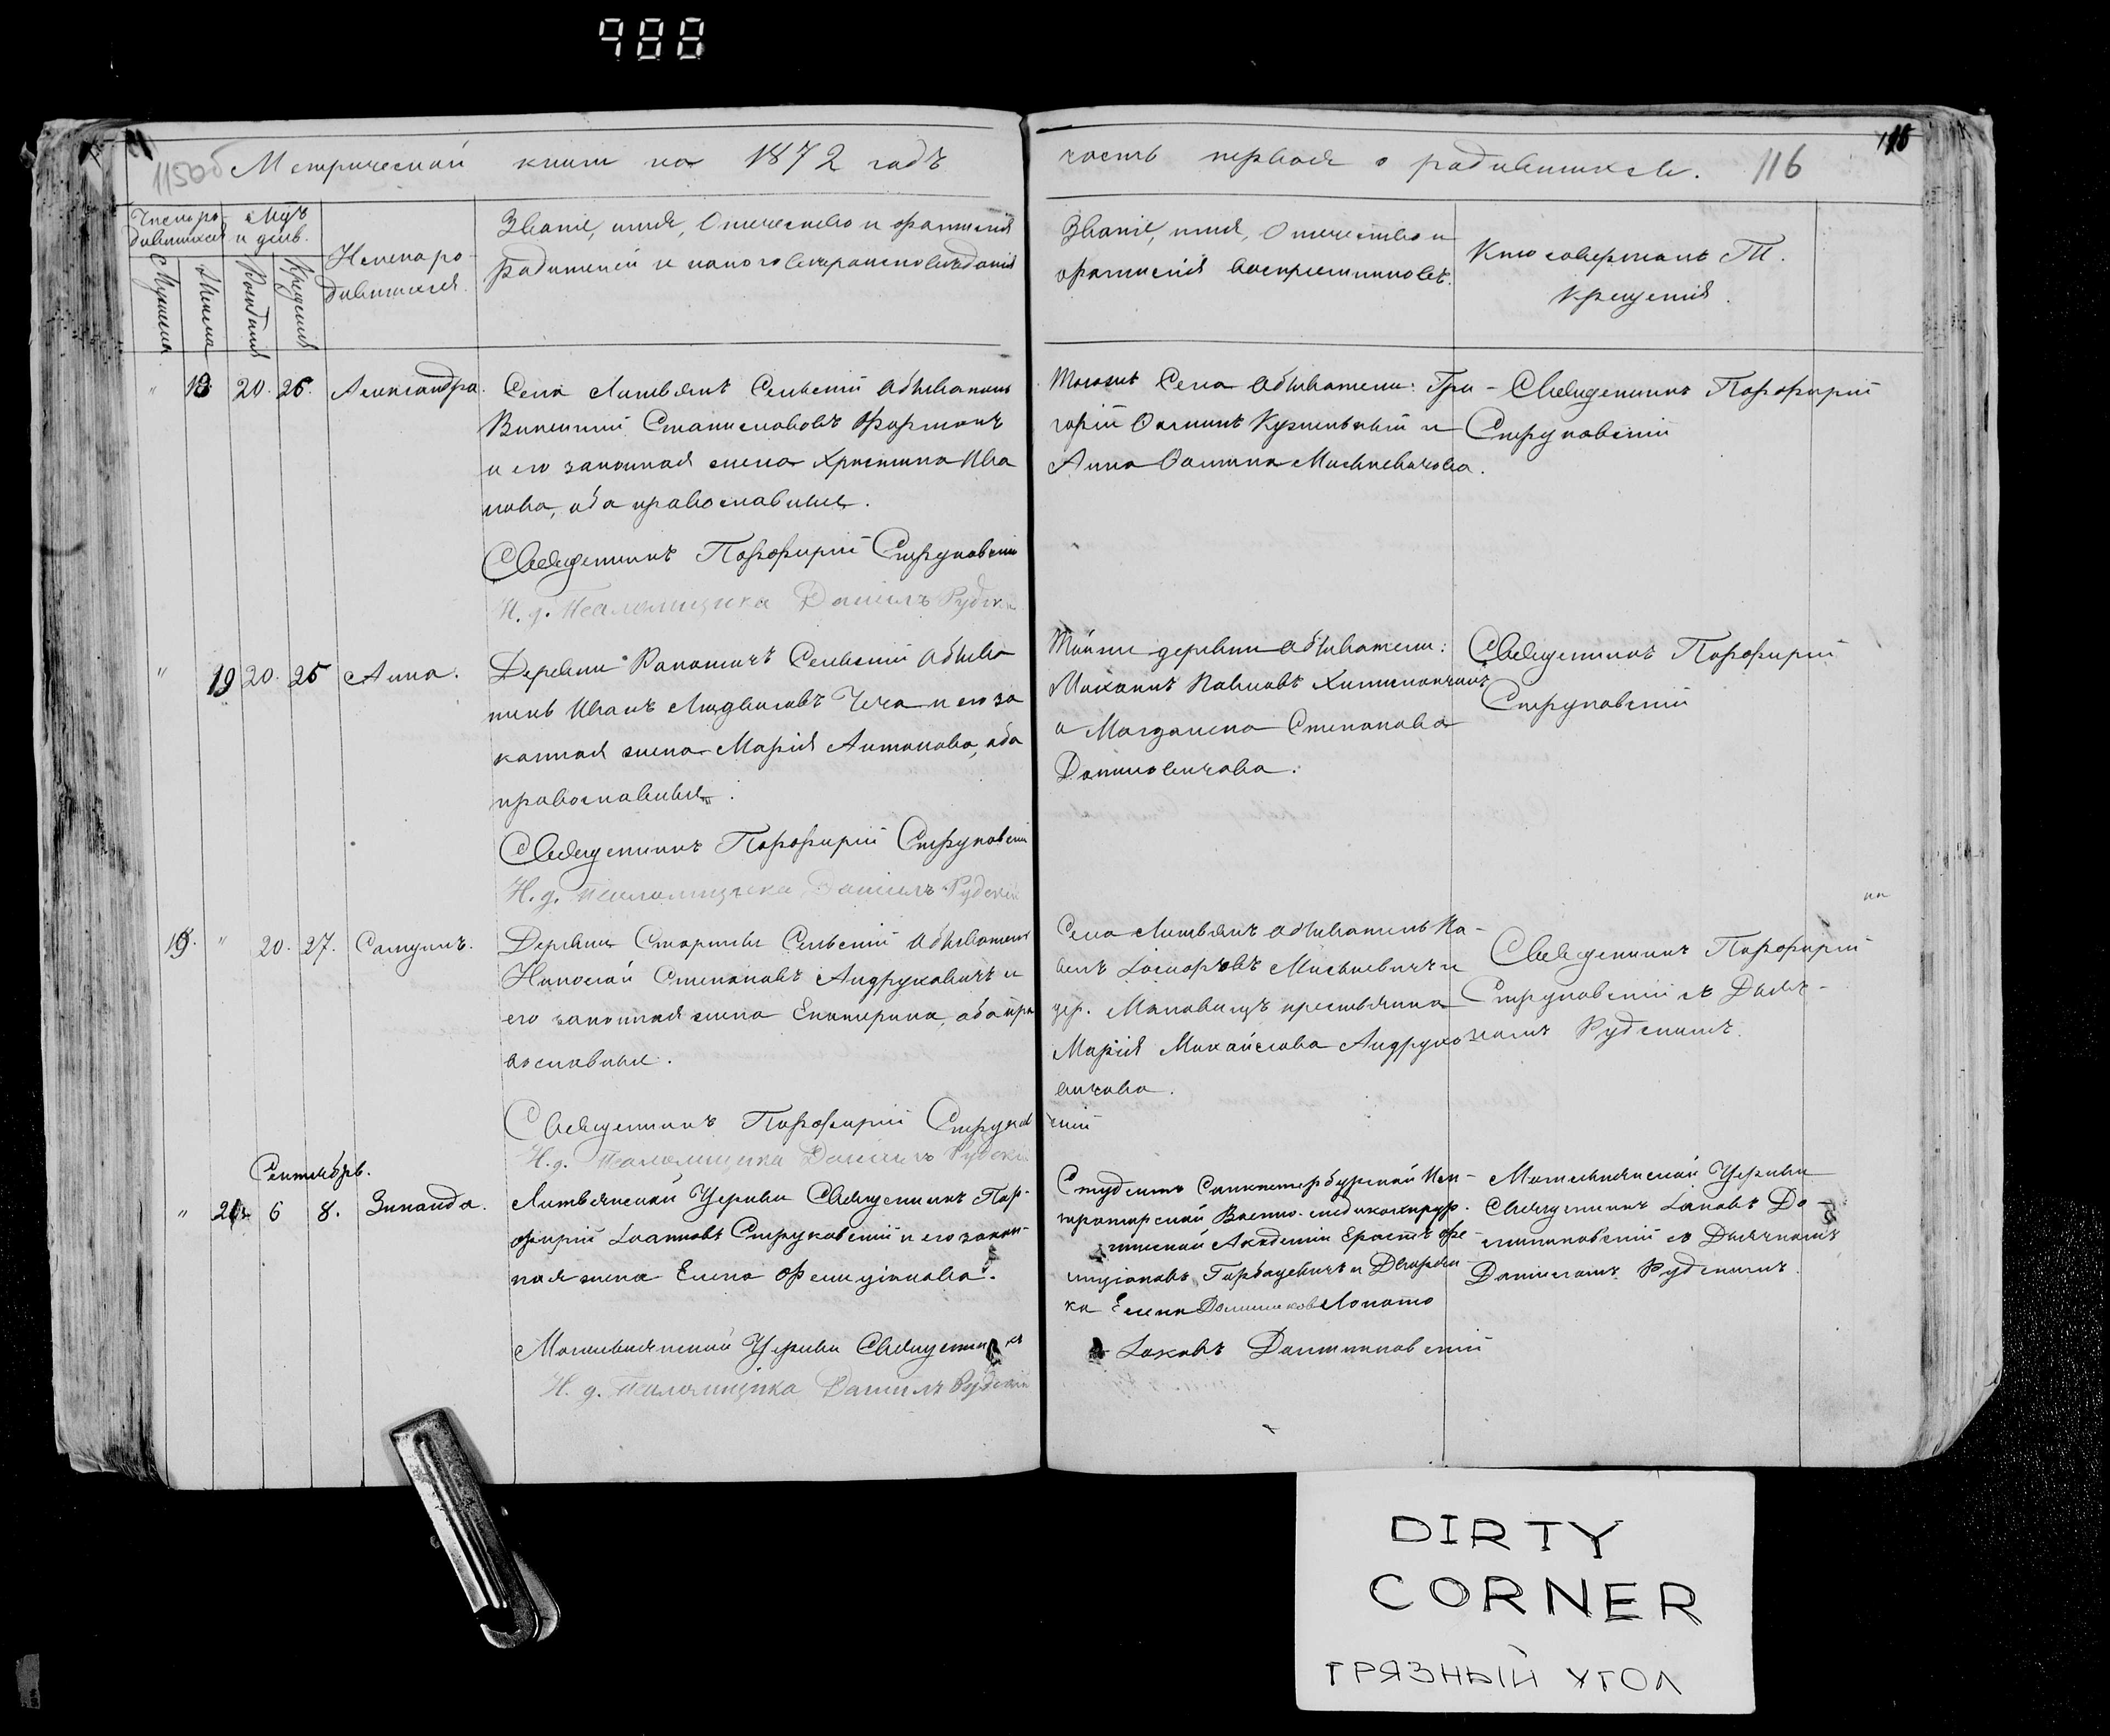 988
115об Метрической книги на 1872 годъ
часть первая о родившихся. 116
116
Число родившихся
Мужеска
Женска
Мѣс. и день
Рожденія
Крещенія
Имена родившихся.
Званіе, имя, Отчество и фамилія
Родителей и какого вѣроисповѣданія
Званіе, имя, Отчество и
фамилія воспріемниковъ.
Кто совершалъ Т.
Крещенія.
" 18 20. 26. Александра.
Села Литвянъ Сельскій обыватель
Викентій Станиславовъ
и его законная жена Христина Ива
нова, оба православные.
Священникъ Порфирій Струковскій
И. д. Псаломщика Даніилъ Рудскій
Тогожъ Села обыватели: Гри-
горій и
Анна Мискевичова.
Священникъ Порфирій
Струковскій
" 19 20. 25 Анна.
Деревни Сельскій обыва
тель Иванъ Чеча и его за
конная жена Марія Антонова, оба
православные.
Священникъ Порфирій Струковскій
И. д. Псаломщика Даніилъ Рудскій
Тойже деревни обыватели:
Павловъ
и Магдалена Степанова
Даниловичова.
Священникъ Порфирій
Струковскій
19. " 20. 27. Самуилъ.
Деревни Сельскій обыватель
Николай Степановъ Андруковичъ и
его законная жена Екатерина, оба пра
вославные.
Священникъ Порфирій Струков
скій
И. д. Псаломщика Даніилъ Рудскій
Села Литвянъ обыватель Па-
велъ Мискевичъ и
дер. крестьянка
Марія Михайлова Андруко
вичова.
Священникъ Порфирій
Струковскій съ Дьяч-
комъ Рудскимъ.
Сентябрь.
" 6 8. Зинаида.
Литвянской Церкви Священникъ Пор-
фирій Іоанновъ Струковскій и его закон-
ная жена Елена Фелиціанова.
Церкви Священникъ
Іаковъ
И. д. Псаломщика Даніилъ Рудскій
Студентъ Санктпетербургской Им-
ператорской Военно-медикохирур-
гической Академіи Ерастъ Фе-
лиціановъ Горбацевичъ и Дворян
ка Елена Лопато
Церкви
Священникъ Іаковъ До-
съ Дьячкомъ
Даніиломъ Рудскимъ.
DIRTY
CORNER
ГРЯЗНЫЙ УГОЛ